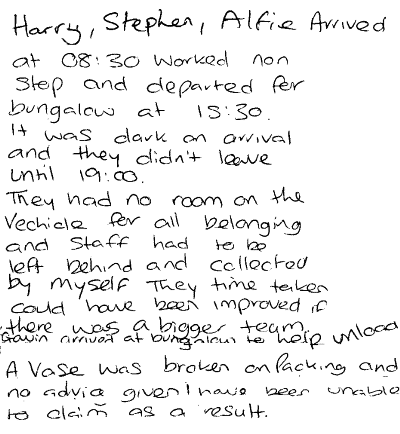 Harry, Stephen, Alfie Arrived
at 08:30 worked non
stop and departed for
bungalow at 15:30.
It was dark on arrival
and they didn't leave
until 19:00.
They had no room on the
Vechicle for all belonging
and staff had to be
left behind and collected
by myself They time taken
could have been improved if
there was a bigger team.
Gavin arrived at bungalow to help unload
A Vase was broken on packing and
no advice given I have been unable
to claim as a result.